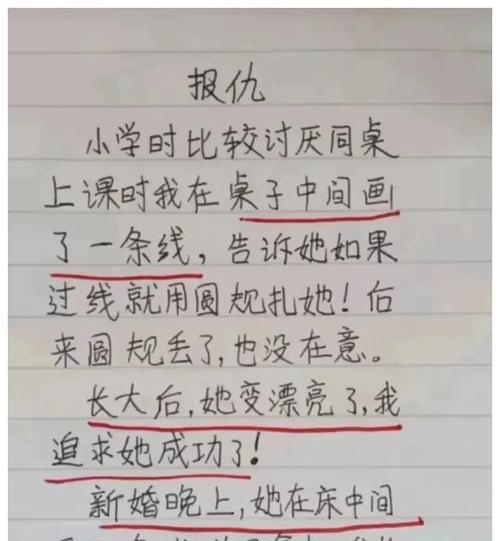 报仇
小学时比较讨厌同桌
上课时我在桌子中间画
了一条线，告诉她如果
过线就用圆规扎她！后
来圆规丢了，也没在意。
长大后，她变漂亮了，我
追求她成功了！
新婚晚上，她在床中间